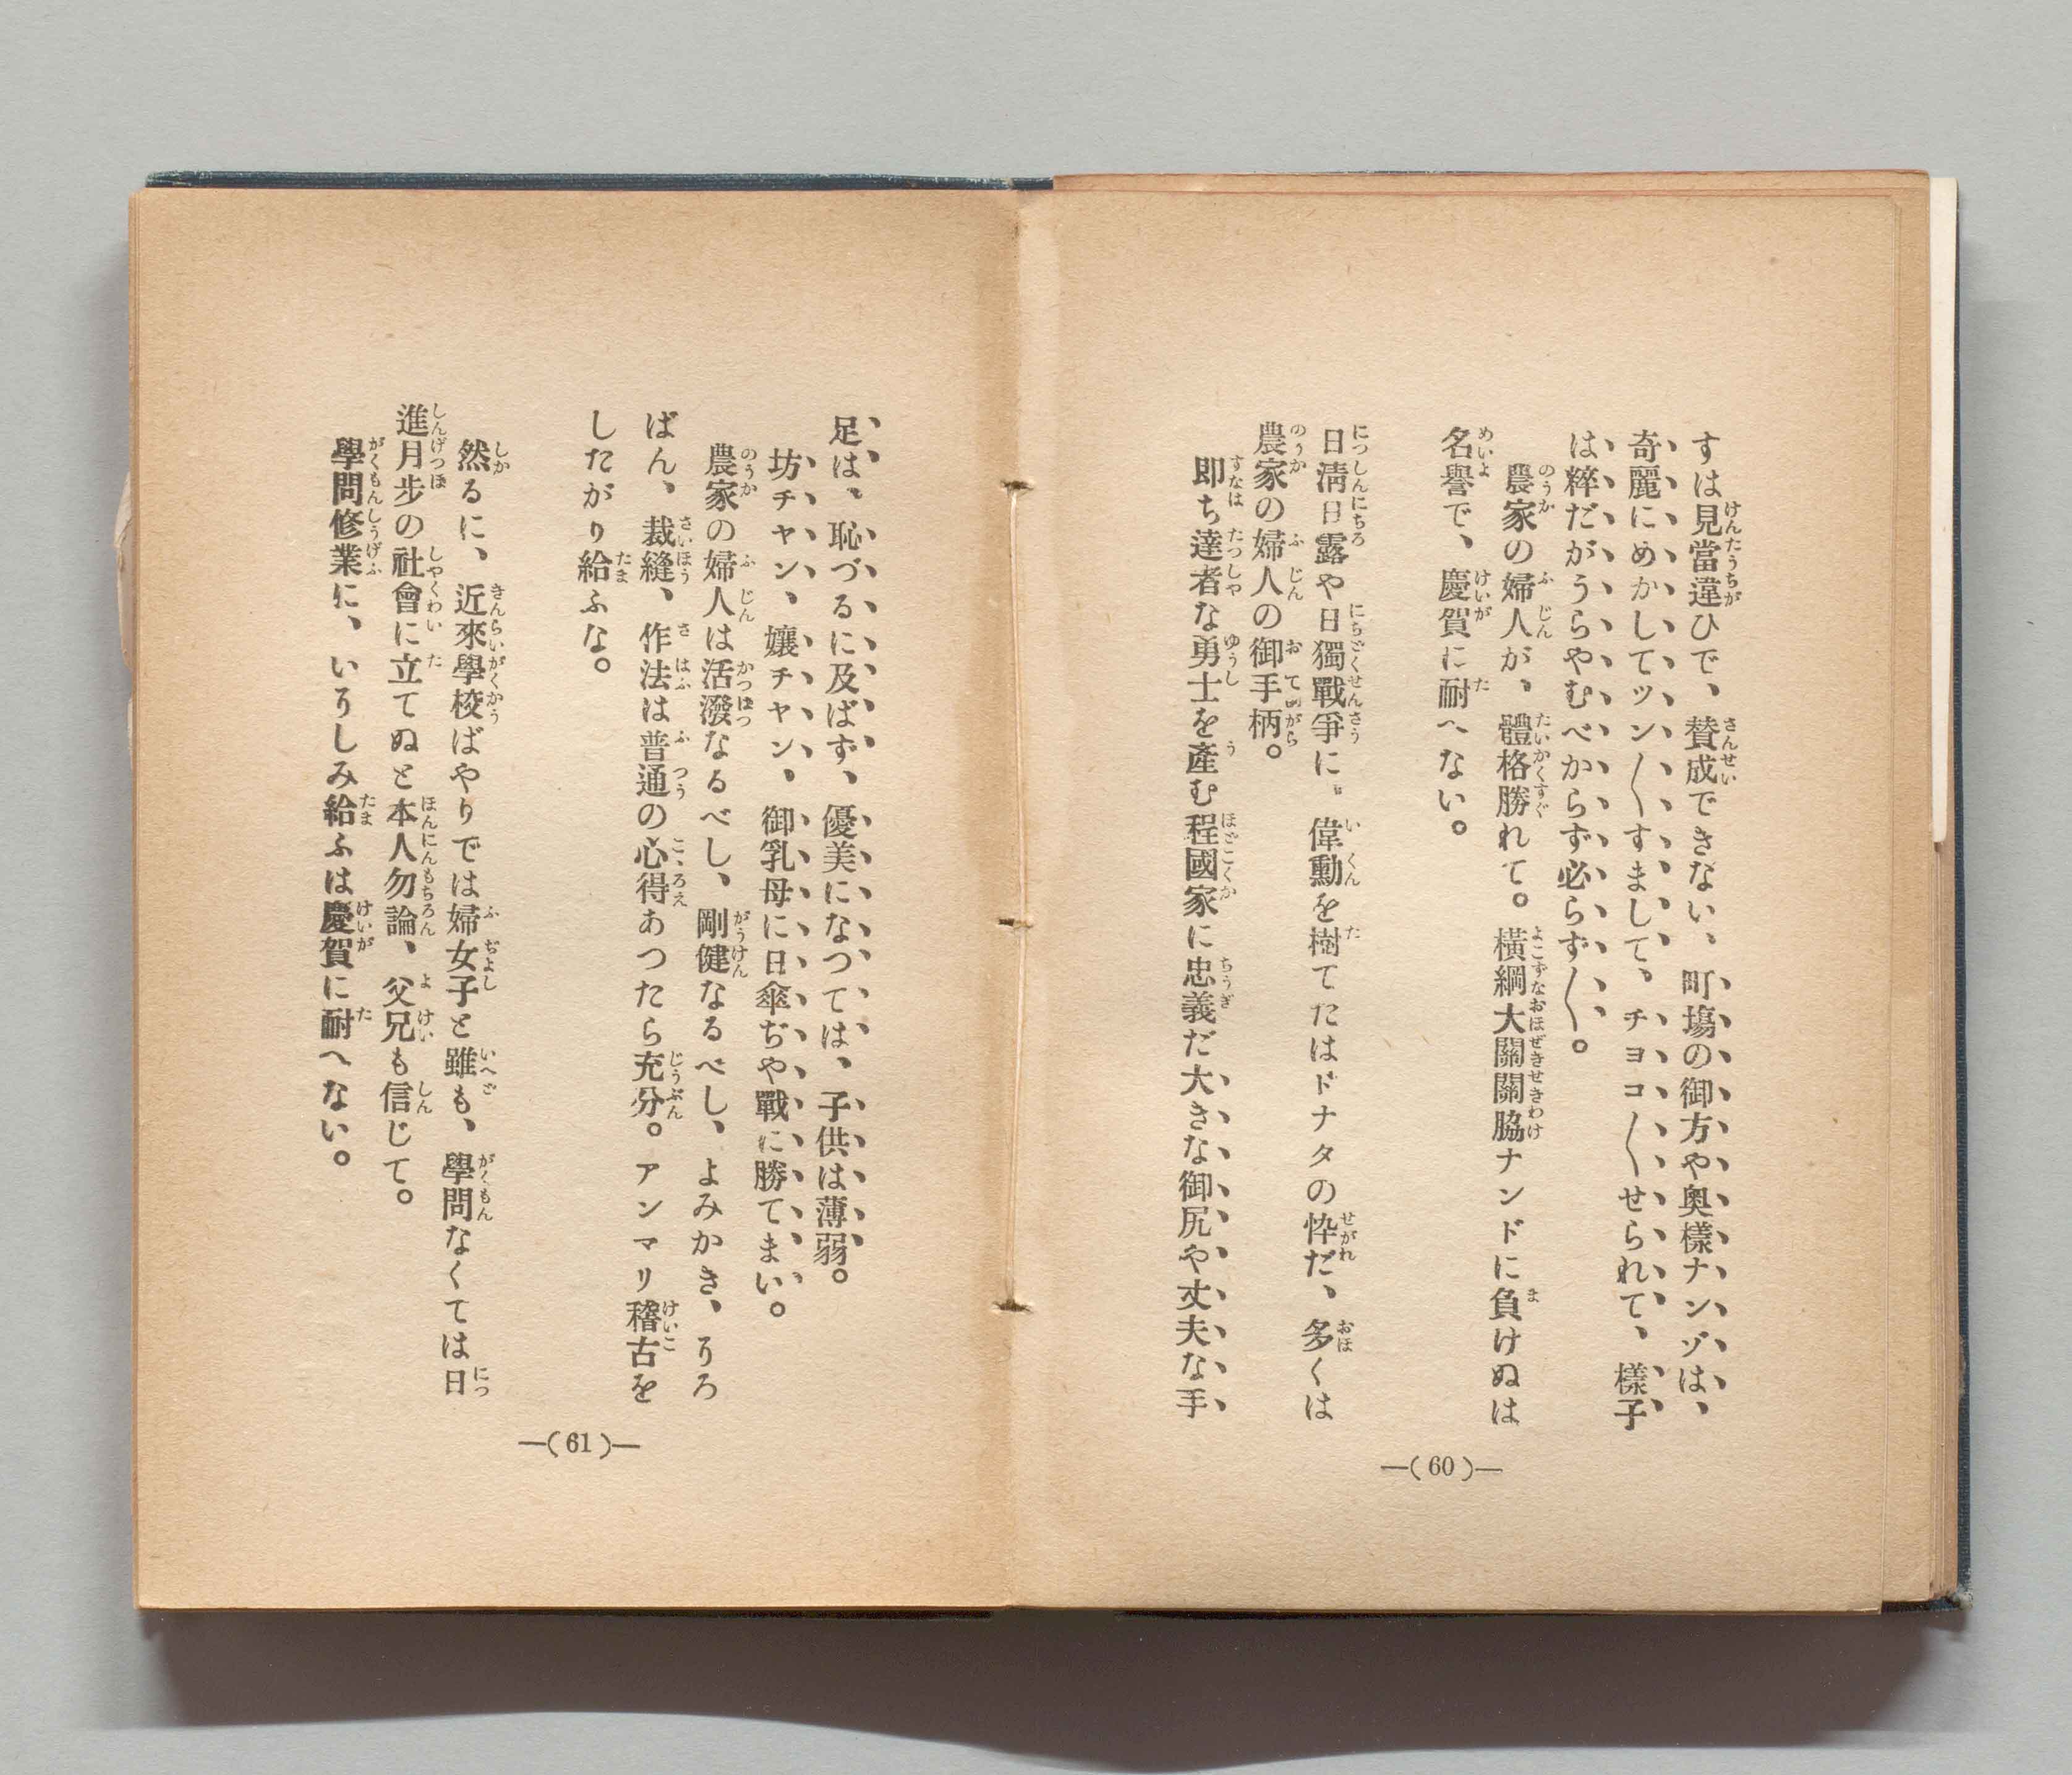 すは見當違ひで、賛成できない、町塲の御方や奥樣ナンゾは、
奇麗にめかしてツン〳〵すまして、チヨコ〳〵せられて、樣子
は粹だがうらやむべからず必らず〳〵。
農家の婦人が、體格勝れて。橫綱大關關脇ナンドに負けぬは
名譽で、慶賀に耐へない。
日淸日露や日獨戰爭に。偉勳を樹てたはドナタの忰だ、多くは
農家の婦人の御手柄。
即ち達者な勇士を產む程國家に忠義だ大きな御尻や丈夫な手
—(60)—
足は、恥づるに及ばず、優美になつては、子供は薄弱。
坊チヤン、孃チヤン、御乳母に日傘ぢや戰に勝てまい。
農家の婦人は活潑なるべし、剛健なるべし、よみかき、そろ
ばん、裁縫、作法は普通の心得あつたら充分。アンマリ稽古を
したがり給ふな。
然るに、近來學校ばやりでは婦女子と雖も、學問なくては日
進月步の社會に立てぬと本人勿論、父兄も信じて。
學問修業に、いそしみ給ふは慶賀に耐へない。
—(61)—